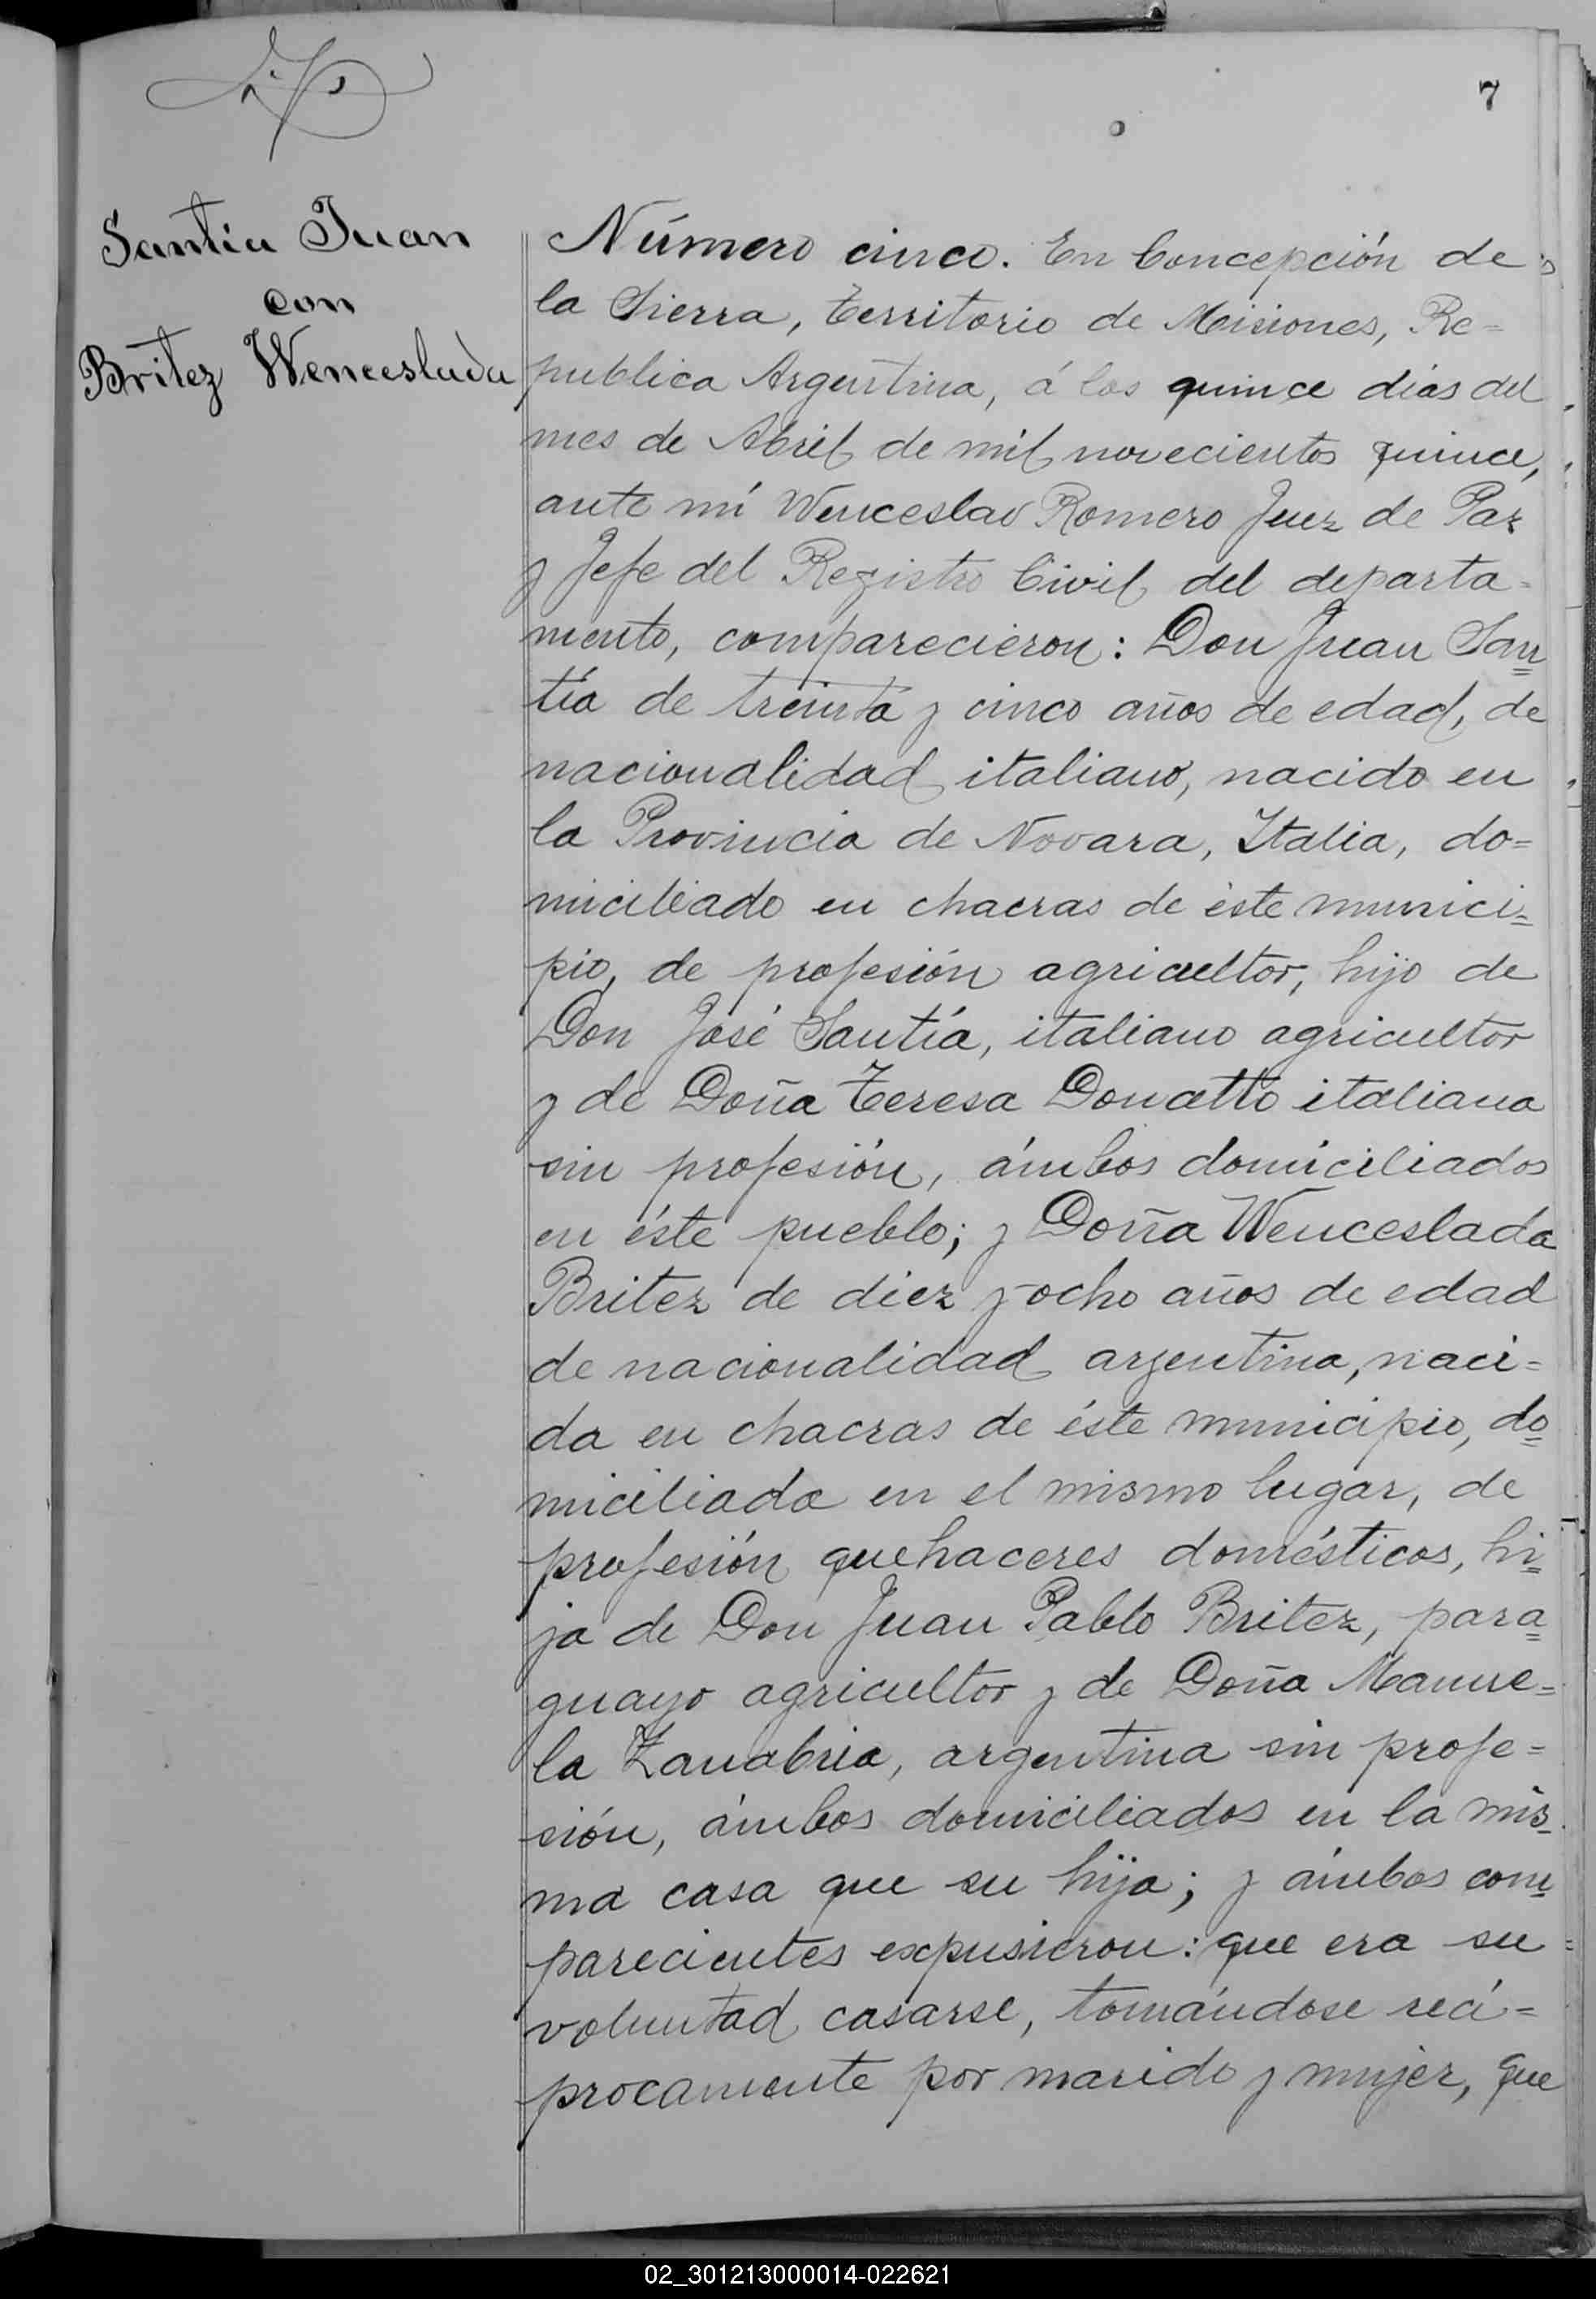 7
Santía Juan
con
Britez Wenceslada
Número cinco. En Concepción de
la Sierra, Territorio de Misiones, Re=
publica Argentina, á los quince días del
mes de Abril de mil novecientos quince,
ante mí Wenceslao Romero Juez de Paz
y Jefe del Registro Civil del departa=
mento, comparecieron: Don Juan San=
tía de treinta y cinco años de edad, de
nacionalidad italiano, nacido en
la Provincia de Novara, Italia, do=
miciliado en chacras de éste munici=
pio, de profesión agricultor, hijo de
Don José Santía, italiano agricultor
y de Doña Teresa Donatto italiana
sin profesión, ámbos domiciliados
en éste pueblo; y Doña Wenceslada
Britez de diez y ocho años de edad
de nacionalidad argentina, naci=
da en chacras de éste municipio, do=
miciliada en el mismo lugar, de
profesión quehaceres domésticos, hi=
ja de Don Juan Pablo Britez, para=
guayo agricultor y de Doña Manue=
la Zanabria, argentina sin profe=
sión, ámbos domiciliados en la mis=
ma casa que su hija; y ámbos com=
parecientes expusieron: que era su
voluntad casarse, tomándose recí=
procamente por marido y mujer, que
02_301213000014-022621